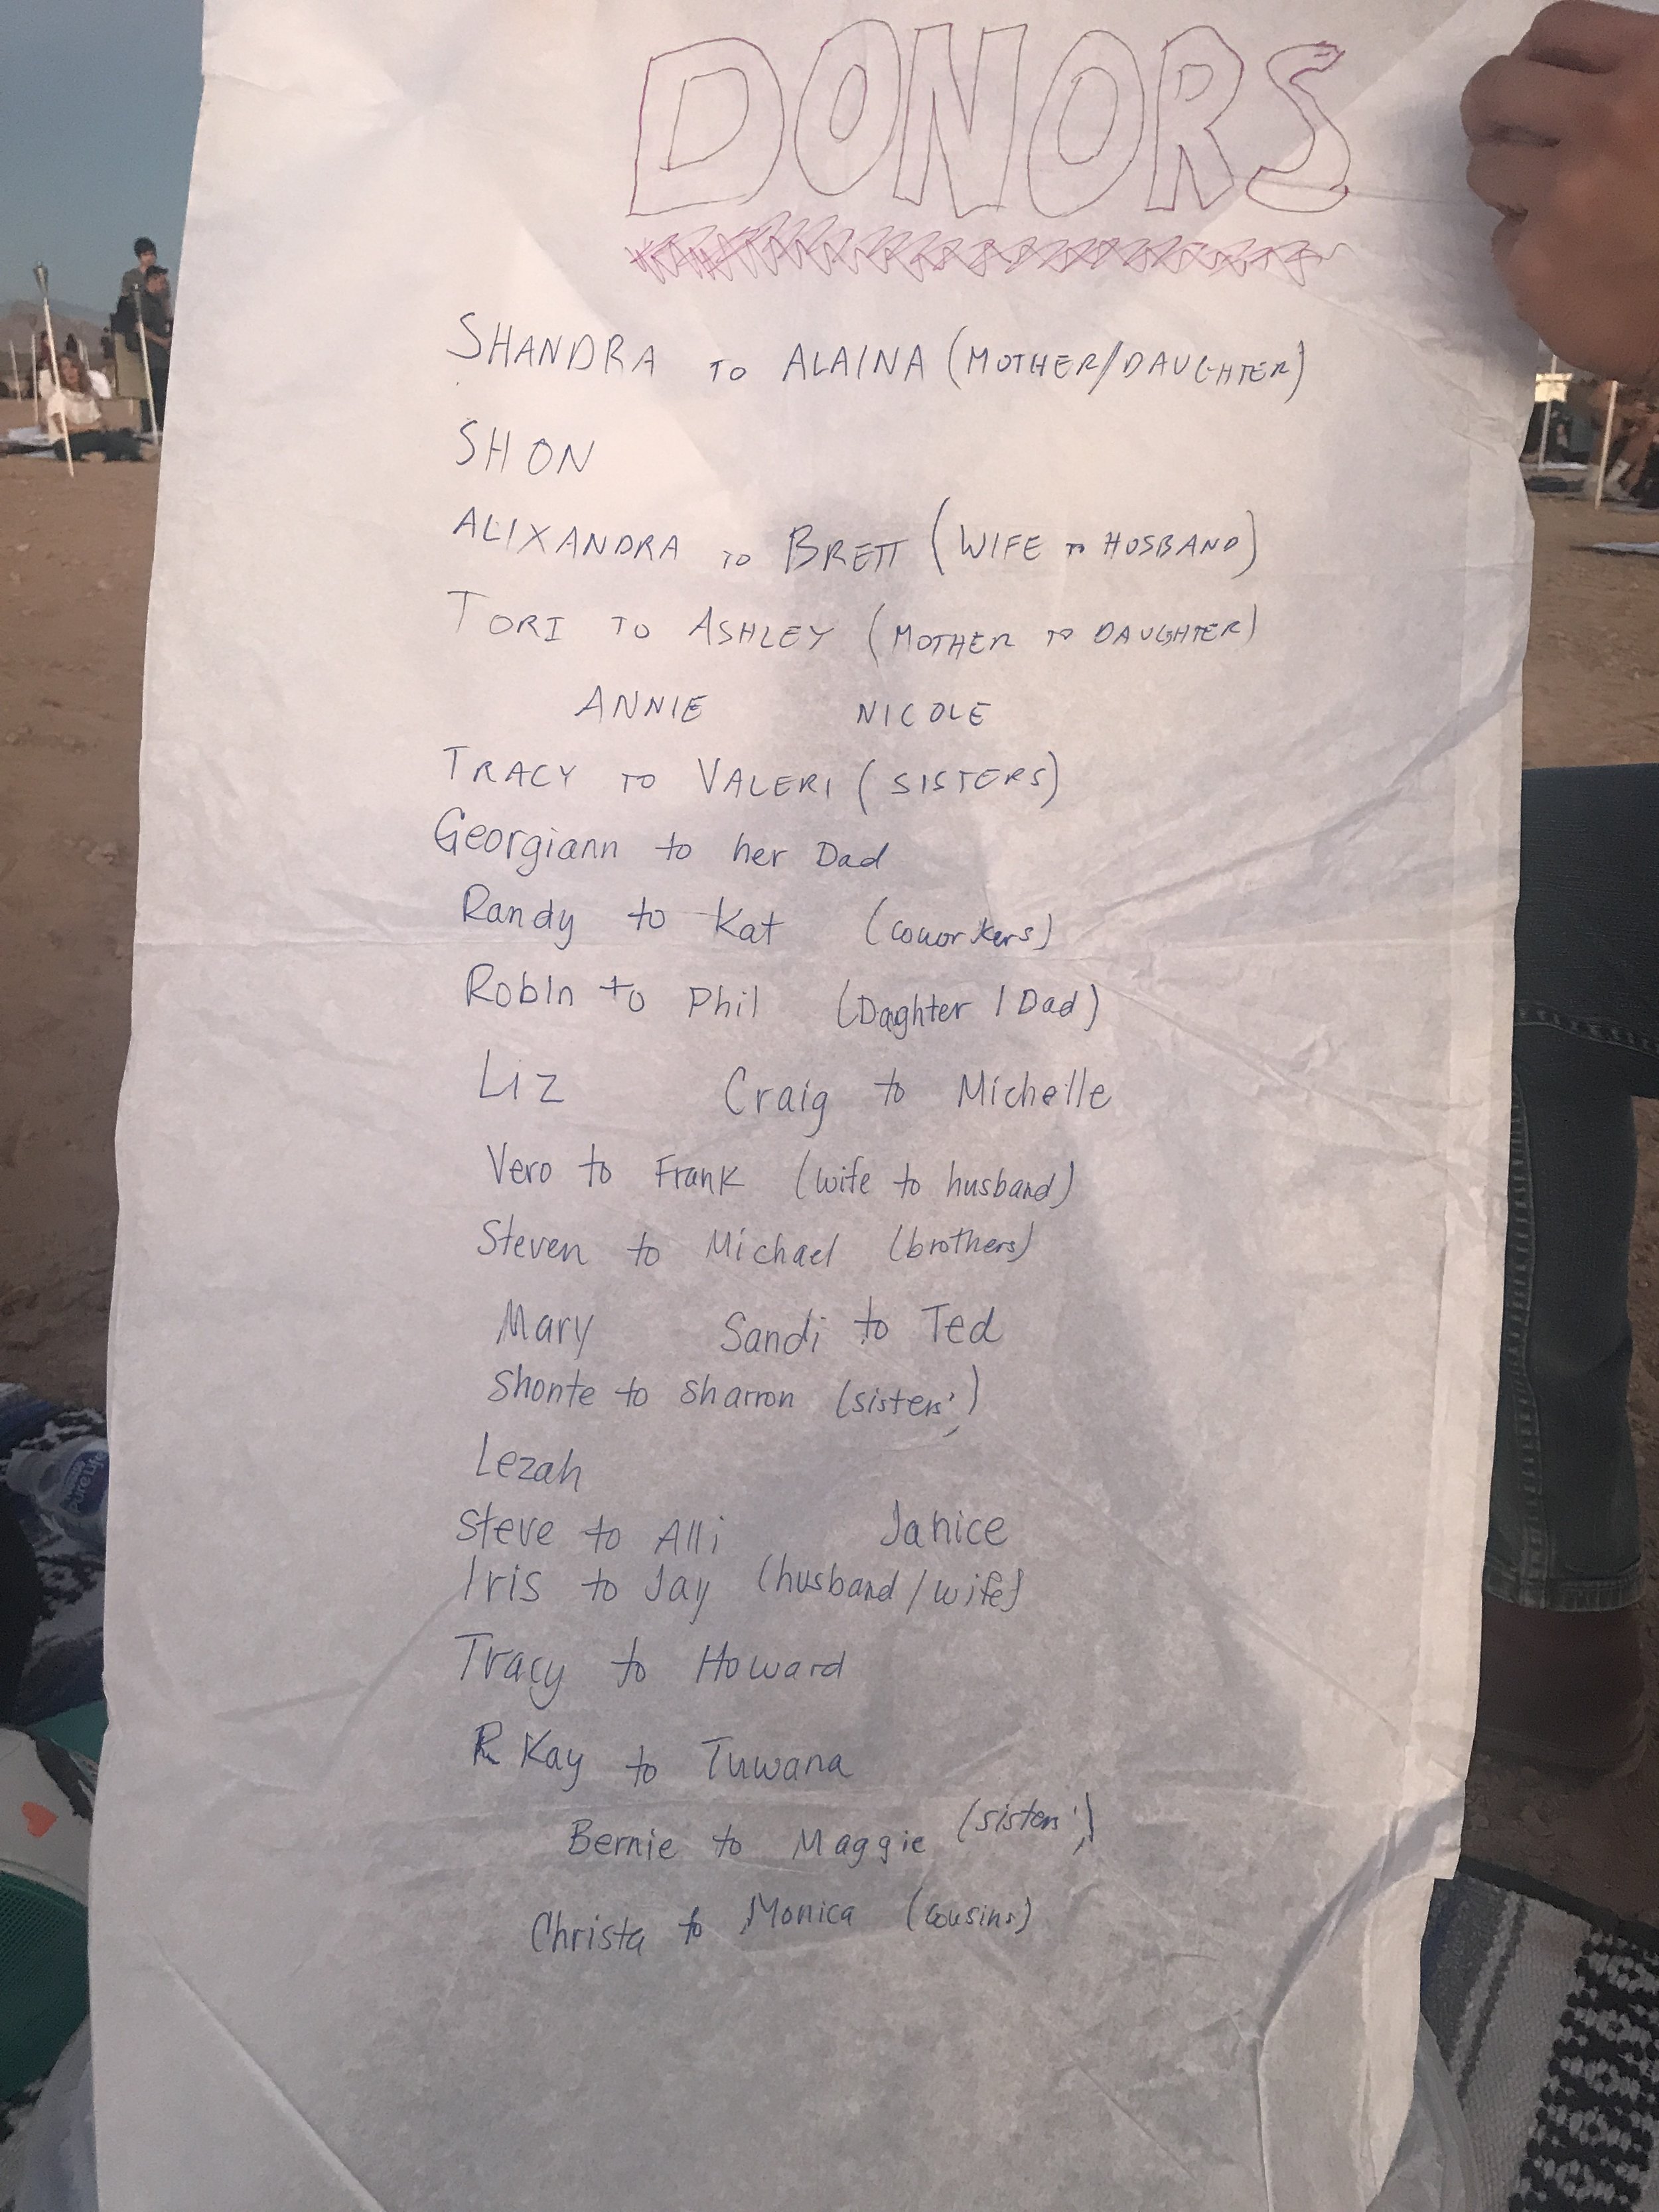 DONORS
SHANDRA TO ALAINA (MOTHER/DAUGHTER)
SHON
ALIXANDRA TO BRETT (WIFE TO HUSBAND)
TORI TO ASHLEY (MOTHER TO DAUGHTER)
ANNIE NICOLE
TRACY TO VALERI (SISTERS)
Georgiann to her Dad
Randy to Kat (coworkers)
Robin to Phil (Daghter / Dad)
Liz Craig to Michelle
Vero to Frank (wife to husband)
Steven to Michael (brothers)
Mary Sandi to Ted
Shonte to Sharron (sisters')
Lezah
Steve to Alli Janice
Iris to Jay (husband/wife)
Tracy to Howard
R Kay to Tuwana
Bernie to Maggie (sisters')
Christa to Monica (cousins)
Pure Life